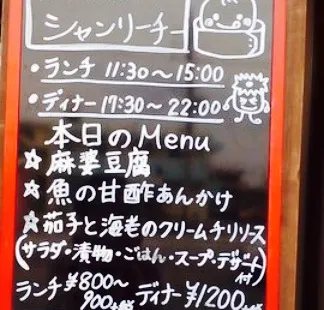 シャンリーチー
・ランチ 11:30～15:00
・ディナー 17:30～22:00
本日のMenu
☆麻婆豆腐
☆魚の甘酢あんかけ
☆茄子と海老のクリームチリソース
(サラダ・漬物・ごはん・スープ・デザート付)
ランチ ¥800～ ディナー ¥1200
900+税